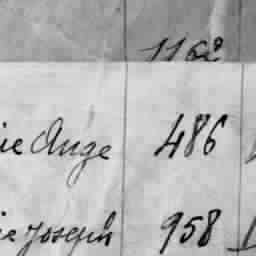 1162
ie Ange 486
ie Joseph 958